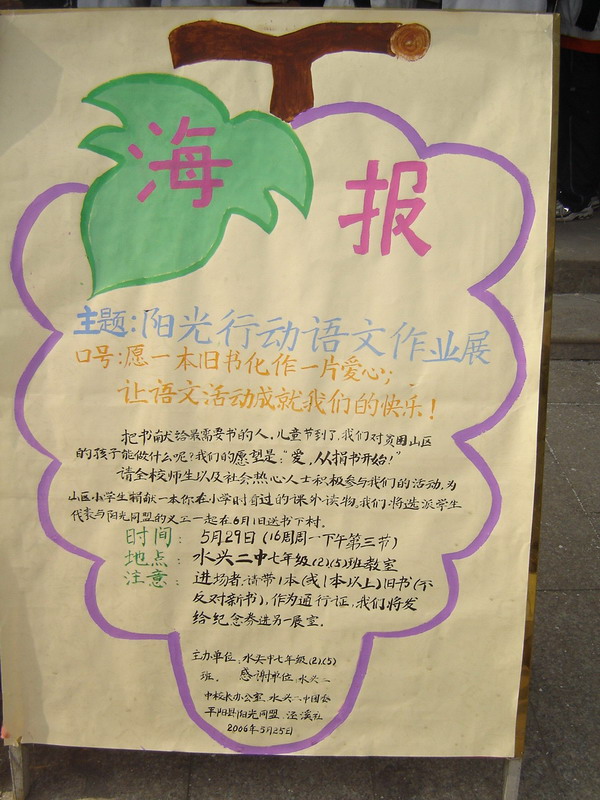 海报
主题:阳光行动语文作业展
口号:愿一本旧书化作一片爱心;
让语文活动成就我们的快乐!
把书献给最需要书的人,儿童节到了,我们对贫困山区
的孩子能做什么呢?我们的愿望是:"爱,从捐书开始!"
请全校师生以及社会热心人士积极参与我们的活动,为
山区小学生捐献一本你在小学时看过的课外读物,我们将选派学生
代表与阳光同盟的义工一起在6月1日送书下村。
时间: 5月29日(16周周一下午第三节)
地点: 水头二中七年级(2)(5)班教室
注意: 进场者,请带1本(或1本以上)旧书(不
反对新书),作为通行证,我们将发
给纪念券进另一展室。
主办单位:水头中七年级(2)(5)
班. 感谢单位:水头二
中校长办公室,水头二中团会
平阳县阳光同盟,泾溪社
2006年5月25日